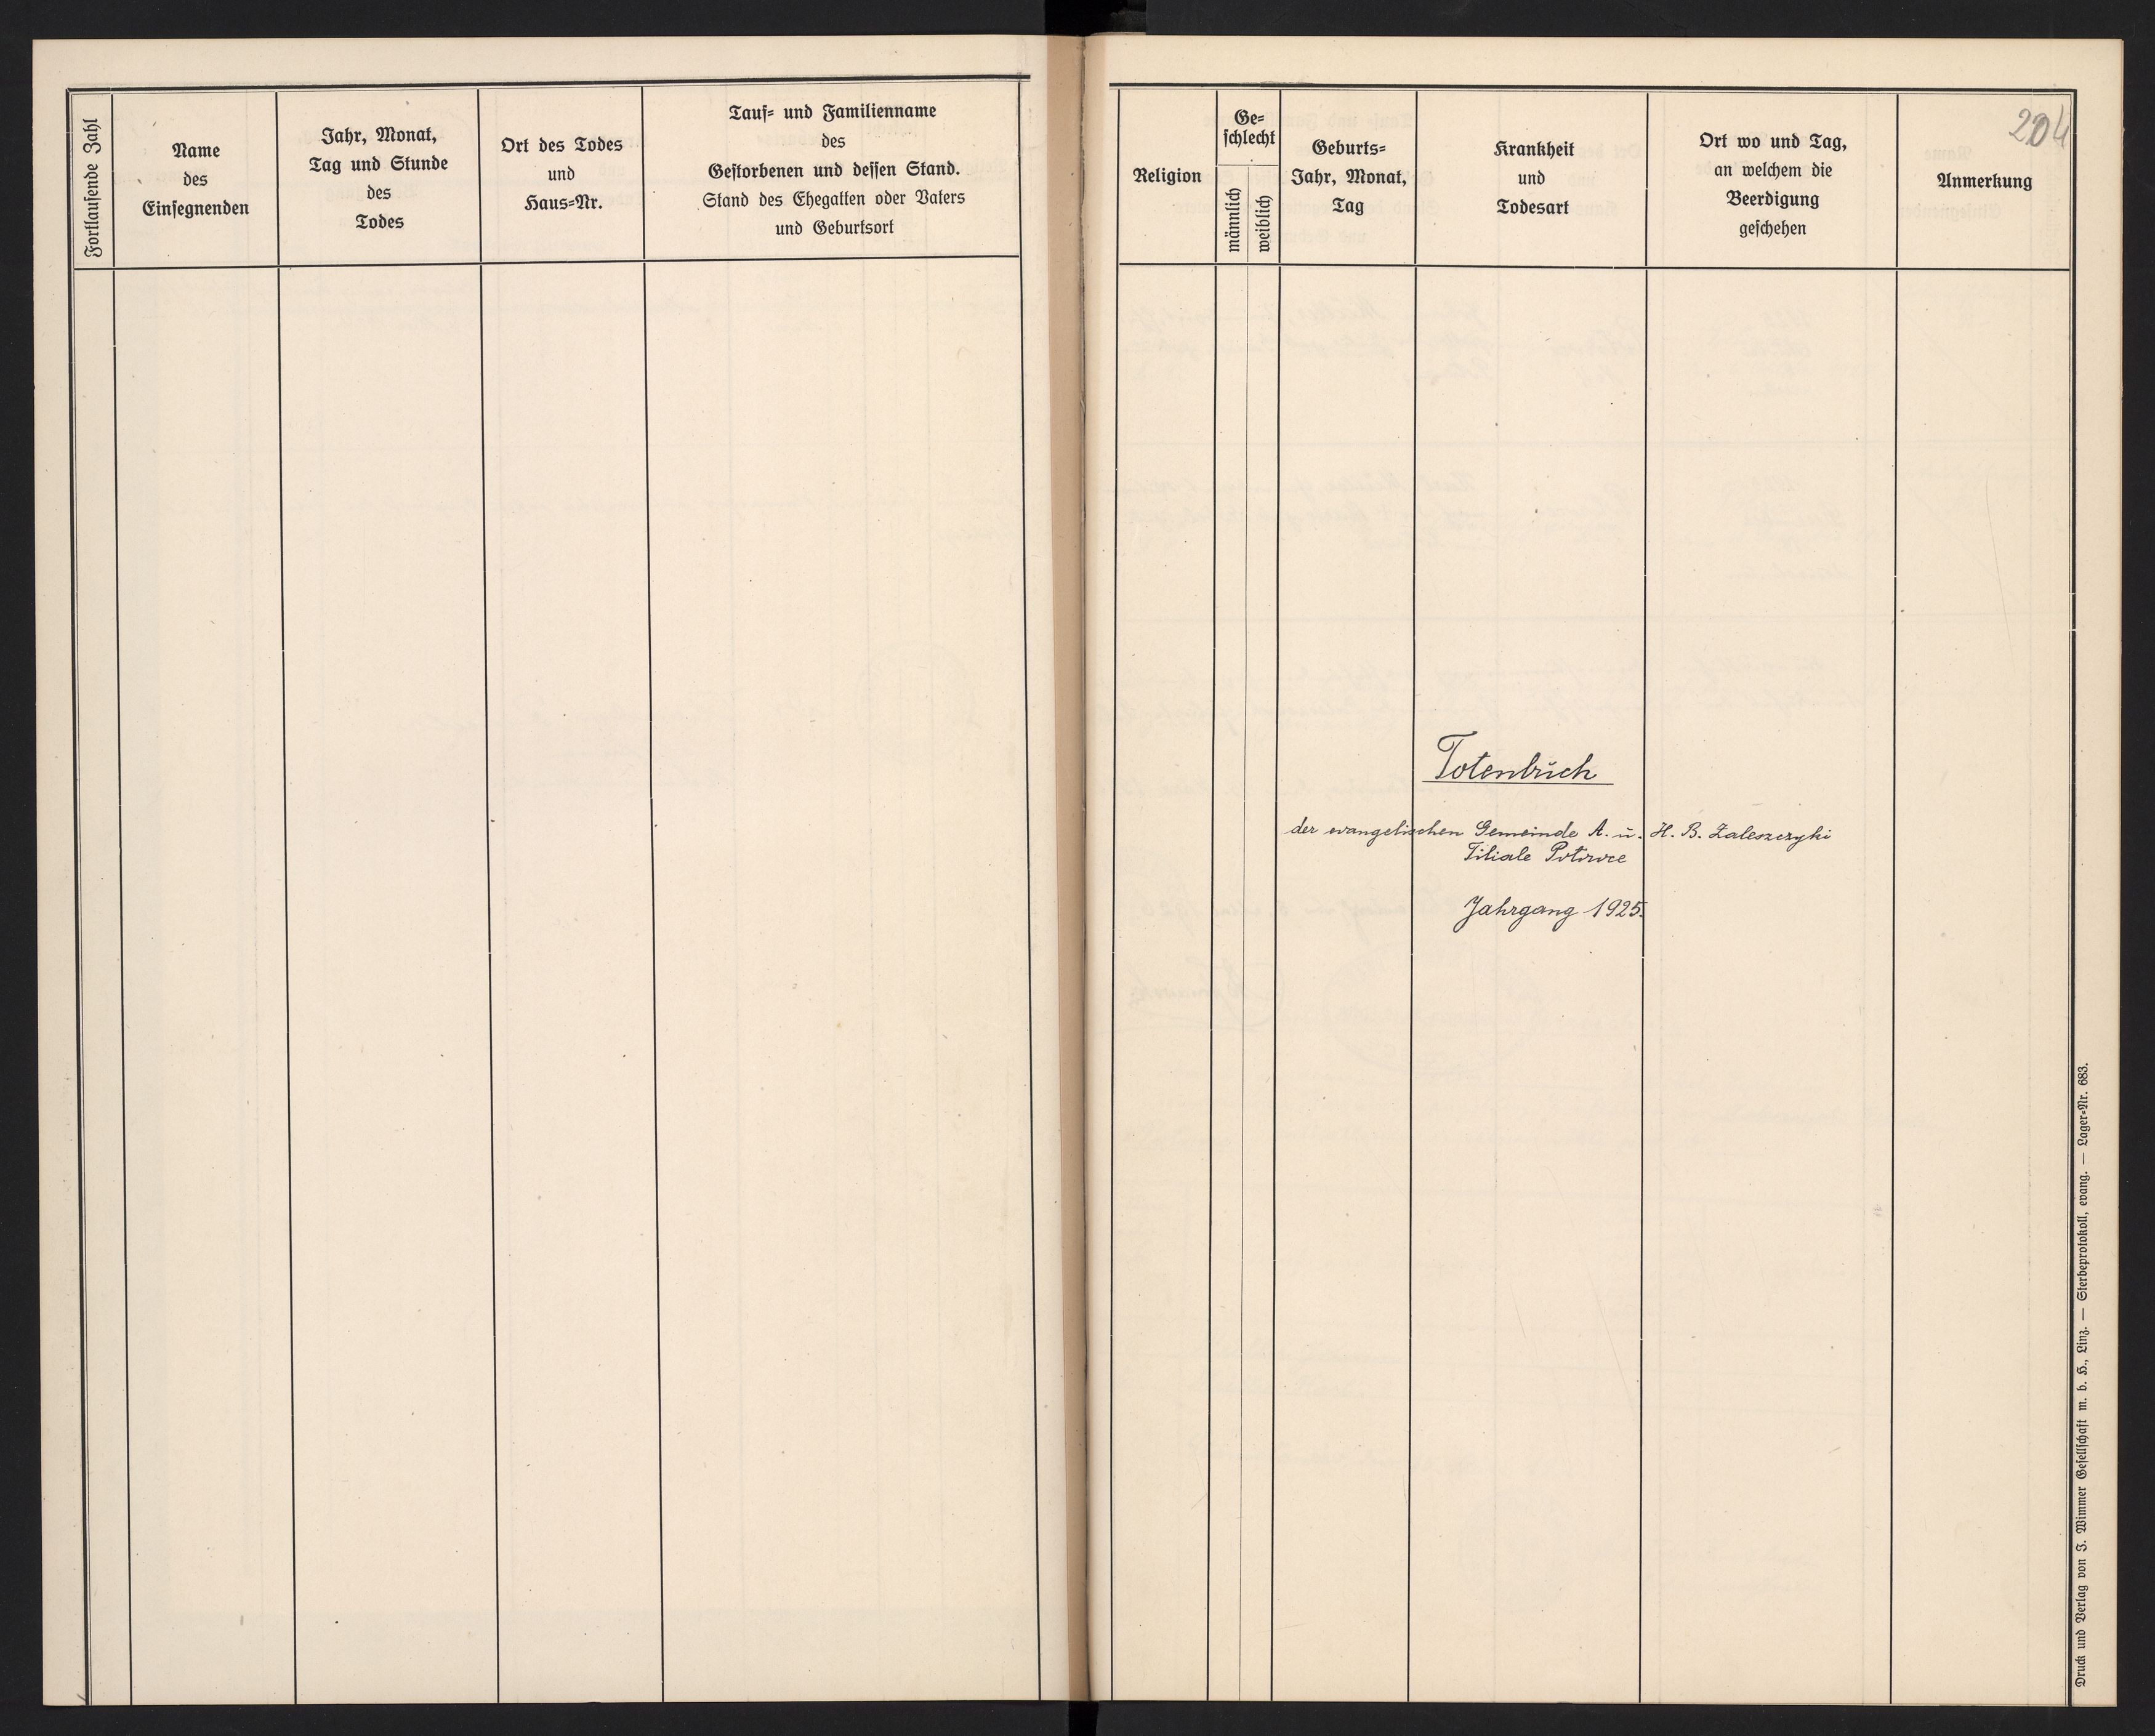 Fortlaufende Zahl
Name
des
Einsegnenden
Jahr, Monat,
Tag und Stunde
des
Todes
Ort des Todes
und
Haus-Nr.
Tauf- und Familienname
des
Gestorbenen und dessen Stand.
Stand des Ehegatten oder Vaters
und Geburtsort
Religion
Ge-
schlecht
männlich
weiblich
Geburts-
Jahr, Monat,
Tag
Krankheit
und
Todesart
Ort wo und Tag,
an welchem die
Beerdigung
geschehen
Anmerkung
204
Totenbuch
der evangelischen Gemeinde A. u. H. B. Zaleszczyki
Filiale
Jahrgang 1925.
Druck und Verlag von J. Wimmer Gesellschaft m. b. H., Linz. — Sterbeprotokoll, evang. — Lager-Nr. 683.